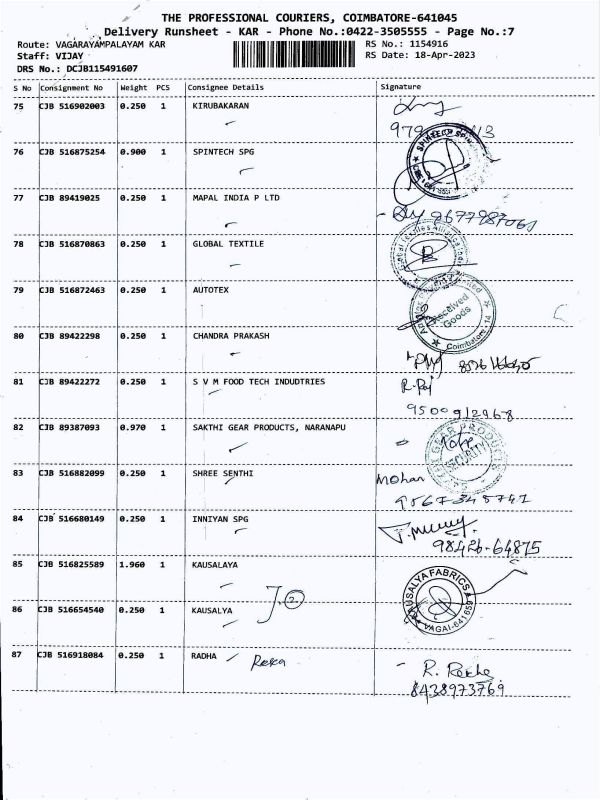 THE PROFESSIONAL COURIERS, COIMBATORE-641045
Delivery Runsheet - KAR - Phone No.:0422-3505555 - Page No.:7
Route: VAGARAYAMPALAYAM KAR RS No.: 1154916
Staff: VIJAY RS Date: 18-Apr-2023
DRS No.: DCJB115491607
S No Consignment No Weight PCS Consignee Details Signature
75 CJB 516902003 0.250 1 KIRUBAKARAN
76 CJB 516875254 0.900 1 SPINTECH SPG
SPINTECH
77 CJB 89419025 0.250 1 MAPAL INDIA P LTD
78 CJB 516870863 0.250 1 GLOBAL TEXTILE
79 CJB 516872463 0.250 1 AUTOTEX
Received
Goods
Coimbatore
80 CJB 89422298 0.250 1 CHANDRA PRAKASH
81 CJB 89422272 0.250 1 S V M FOOD TECH INDUDTRIES
R. Raj
9500912968
82 CJB 89387093 0.970 1 SAKTHI GEAR PRODUCTS, NARANAPU
GEAR PRODUCTS
SECURITY
83 CJB 516882099 0.250 1 SHREE SENTHI
Mohan
9567345741
84 CJB 516680149 0.250 1 INNIYAN SPG
98426-64875
85 CJB 516825589 1.960 1 KAUSALAYA
KAUSALYA FABRICS
VAGAI-641659
86 CJB 516654540 0.250 1 KAUSALYA
87 CJB 516918084 0.250 1 RADHA
R. Radha
8438973769